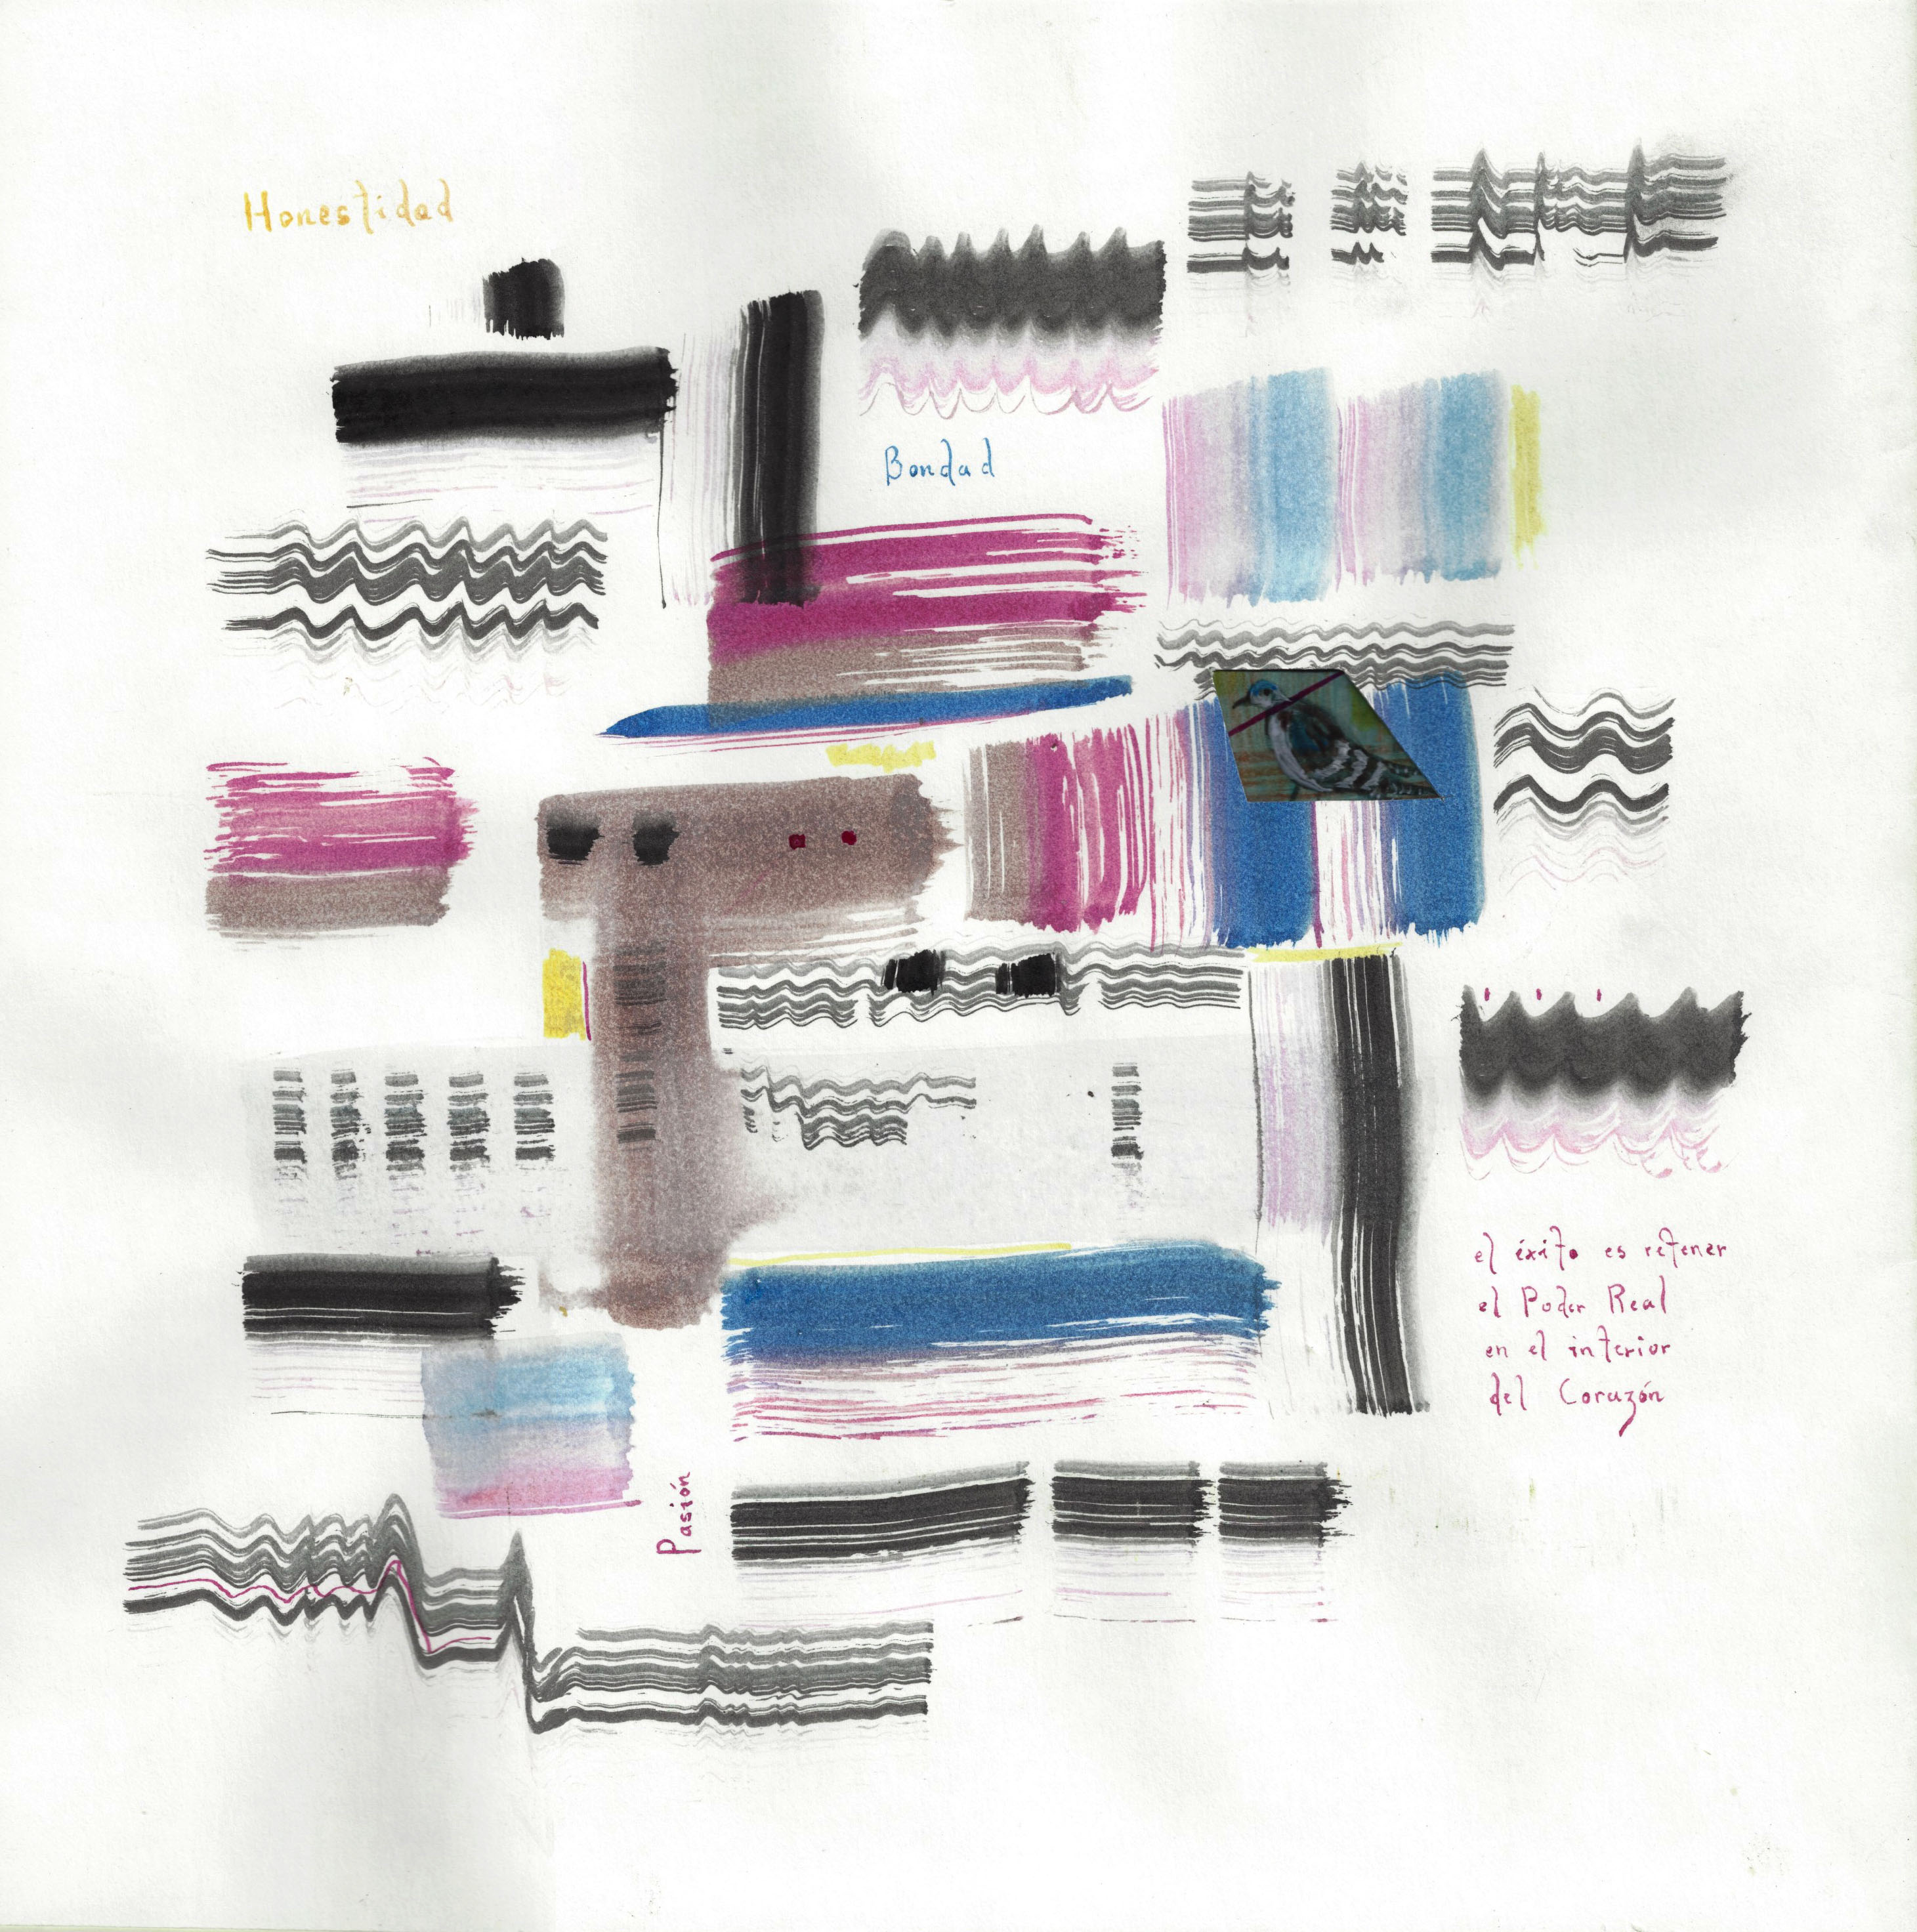 Honestidad
Bondad
el éxito es retener
el Poder Real
en el interior
del Corazón
Pasión